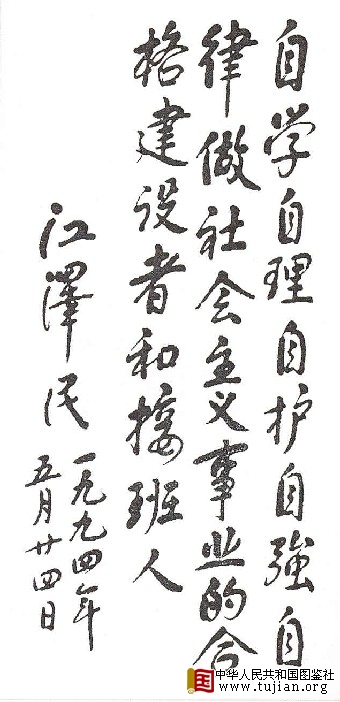 自学自理自护自強自
律做社会主义事业的合
格建设者和接班人
江澤民
一九九四年
五月廿四日
国
中华人民共和国图鉴社
www.tujian.org